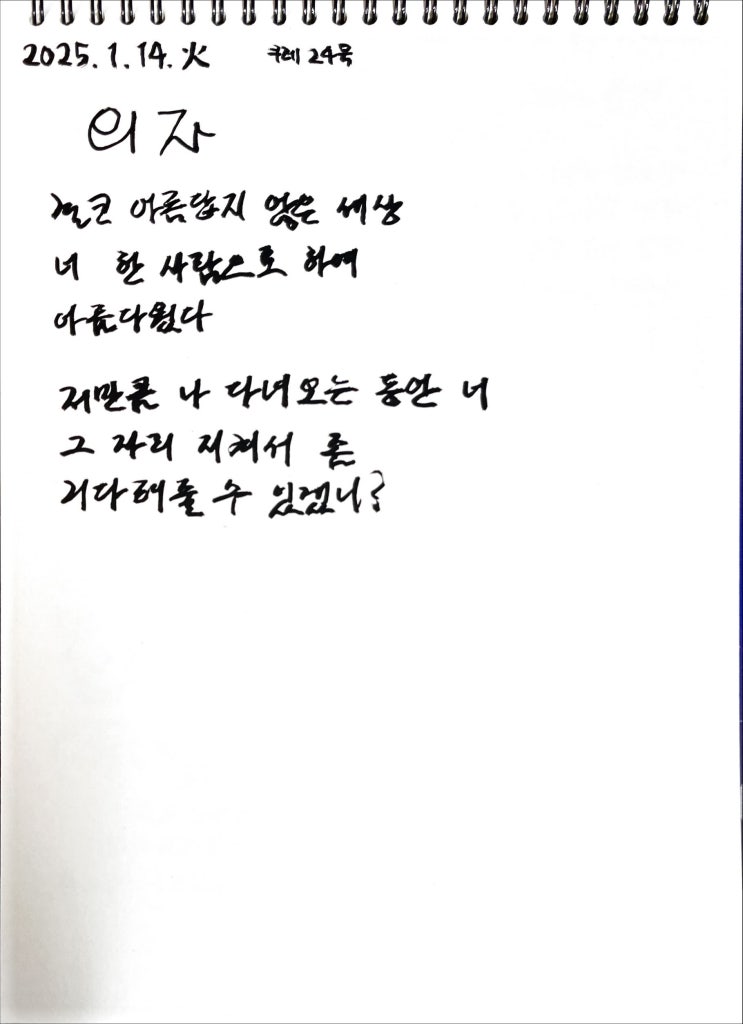 2025. 1. 14. 火 쿠레 24목
의자
결코 아름답지 않은 세상
너 한 사람으로 하여
아름다웠다
저만큼 나 다녀오는 동안 너
그 자리 지켜서 좀
기다려줄 수 있겠니?